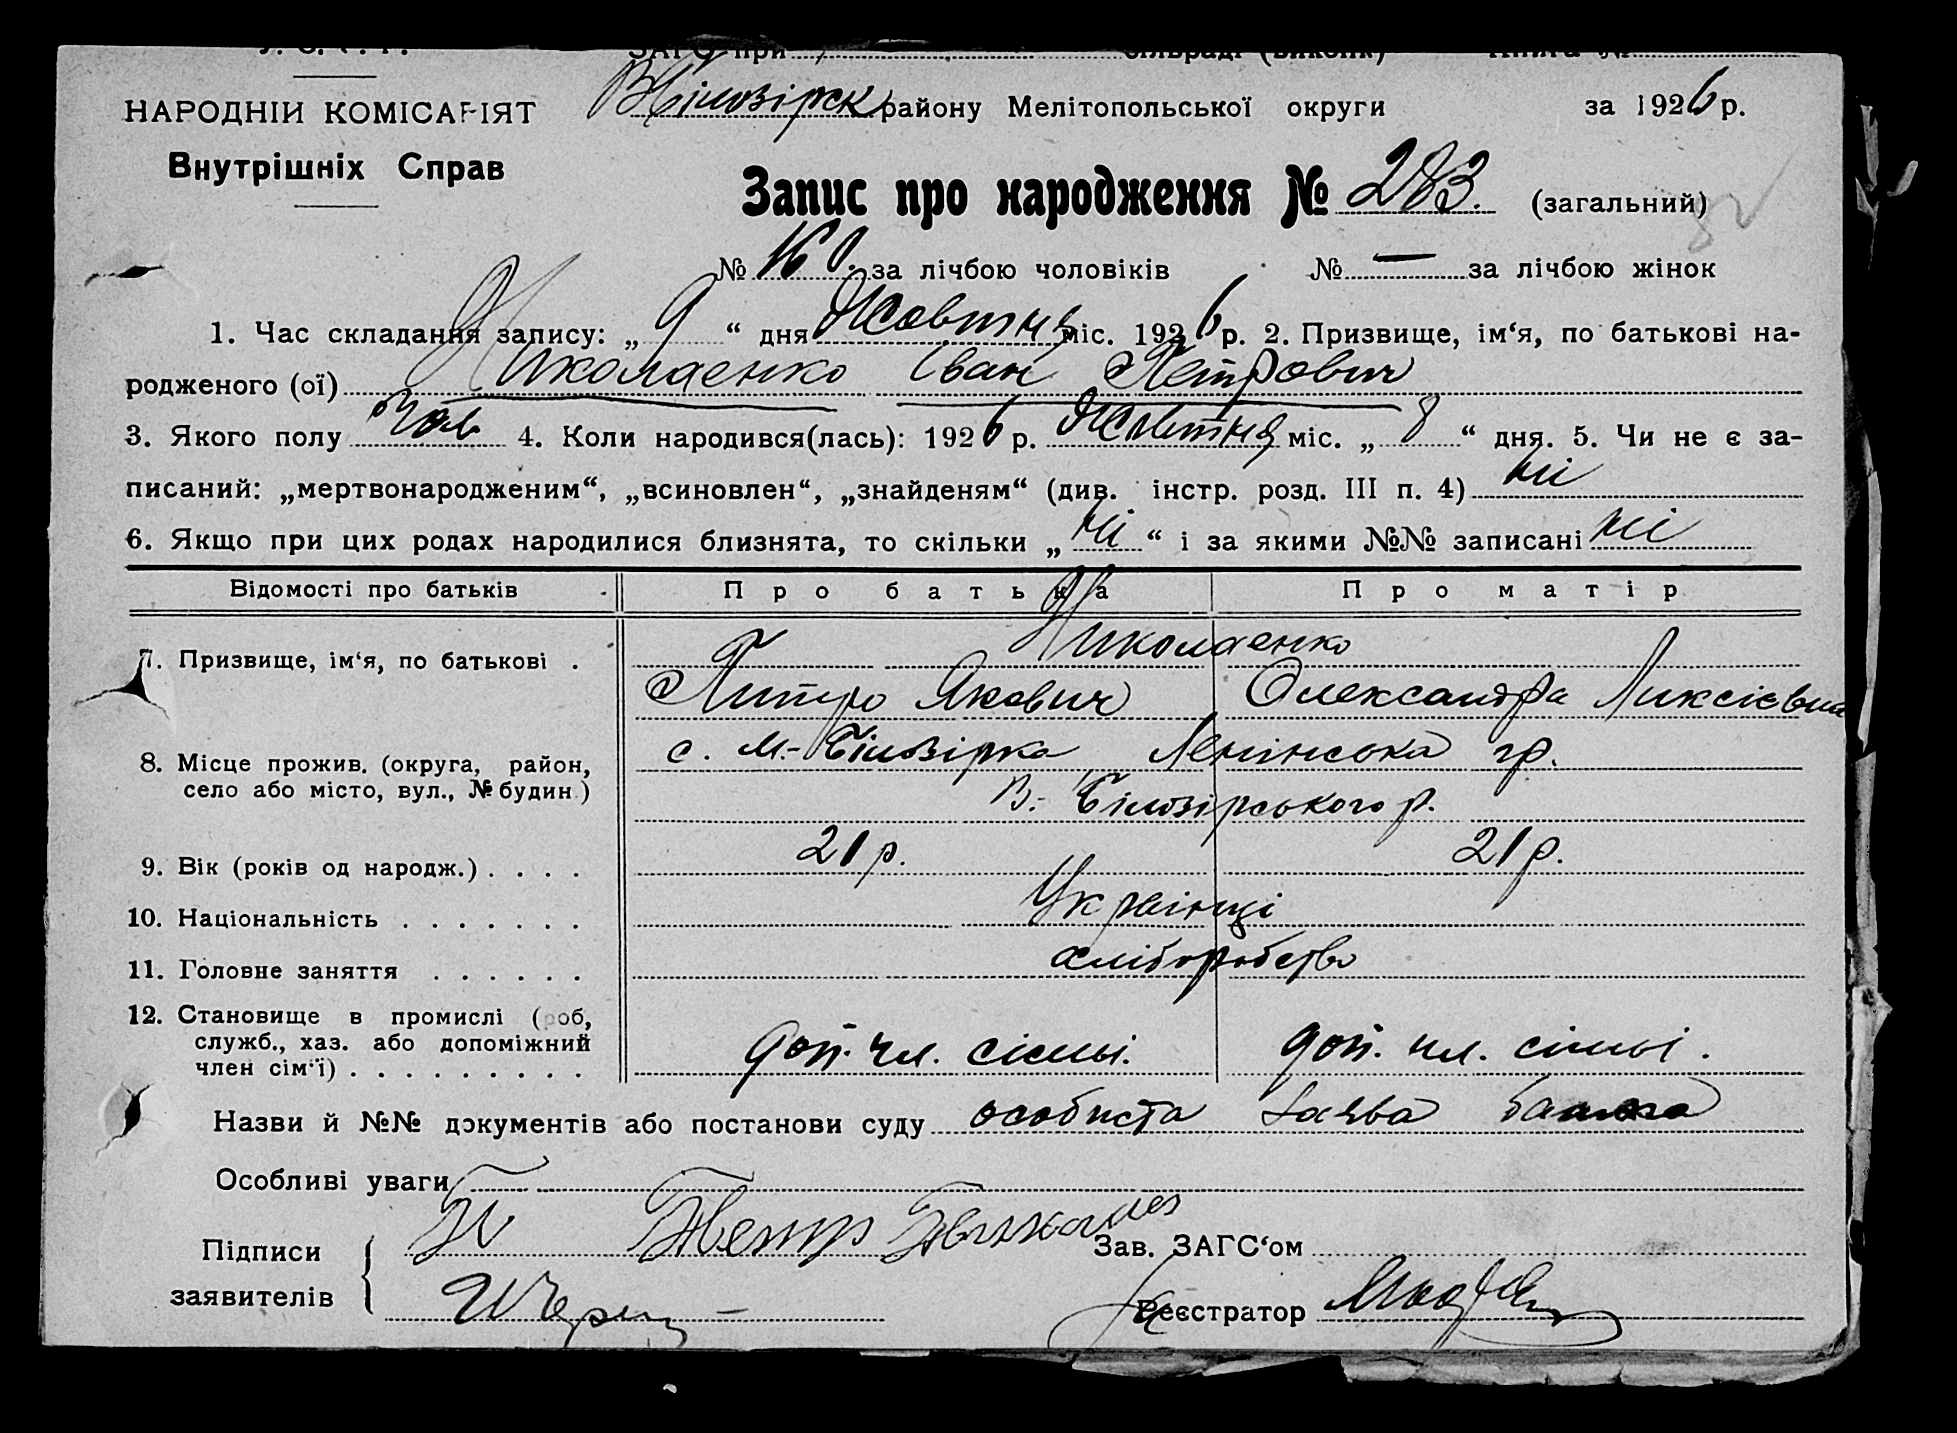 У. С. Р. Р. ЗАГС при сільраді (виконк) Книга №
НАРОДНІЙ КОМІСАРІЯТ В Білозірск району Мелітопольської округи за 1926 р.
Внутрішніх Справ
Запис про народження № 283. (загальний)
№ 160 за лічбою чоловіків № — за лічбою жінок
1. Час складання запису: „ 9 “ дня Жовтня міс. 1926 р. 2. Призвище, ім‘я, по батькові на-
родженого (ої) Николаенко Іван Петрович
3. Якого полу чол 4. Коли народився(лась): 1926 р. Жовтня міс. „ 8 “ дня. 5. Чи не є за-
писаний: „мертвонародженим“, „всиновлен“, „знайденям“ (див. інстр. розд. III п. 4) ні
6. Якщо при цих родах народилися близнята, то скільки „ ні “ і за якими №№ записані ні
Відомості про батьків Про батька Про матір
7. Призвище, ім‘я, по батькові . Николаенко
Питро Якович Олександра Ликсієвна
8. Місце прожив. (округа, район, с. М.-Білозірка Ленінська гр.
село або місто, вул., № будин.) В.-Білозірського р.
9. Вік (років од народж.) . . . . 21 р. 21 р.
10. Національність . . . . . . . Українці
11. Головне заняття . . . . . . хліборобство
12. Становище в промислі (роб,
служб., хаз. або допоміжний доп. чл. сімьі. доп. чл. сімьі.
член сім‘ї) . . . . . . . . .
Назви й №№ документів або постанови суду особиста заява батька
Особливі уваги
Підписи Зав. ЗАГС‘ом
заявителів Реєстратор